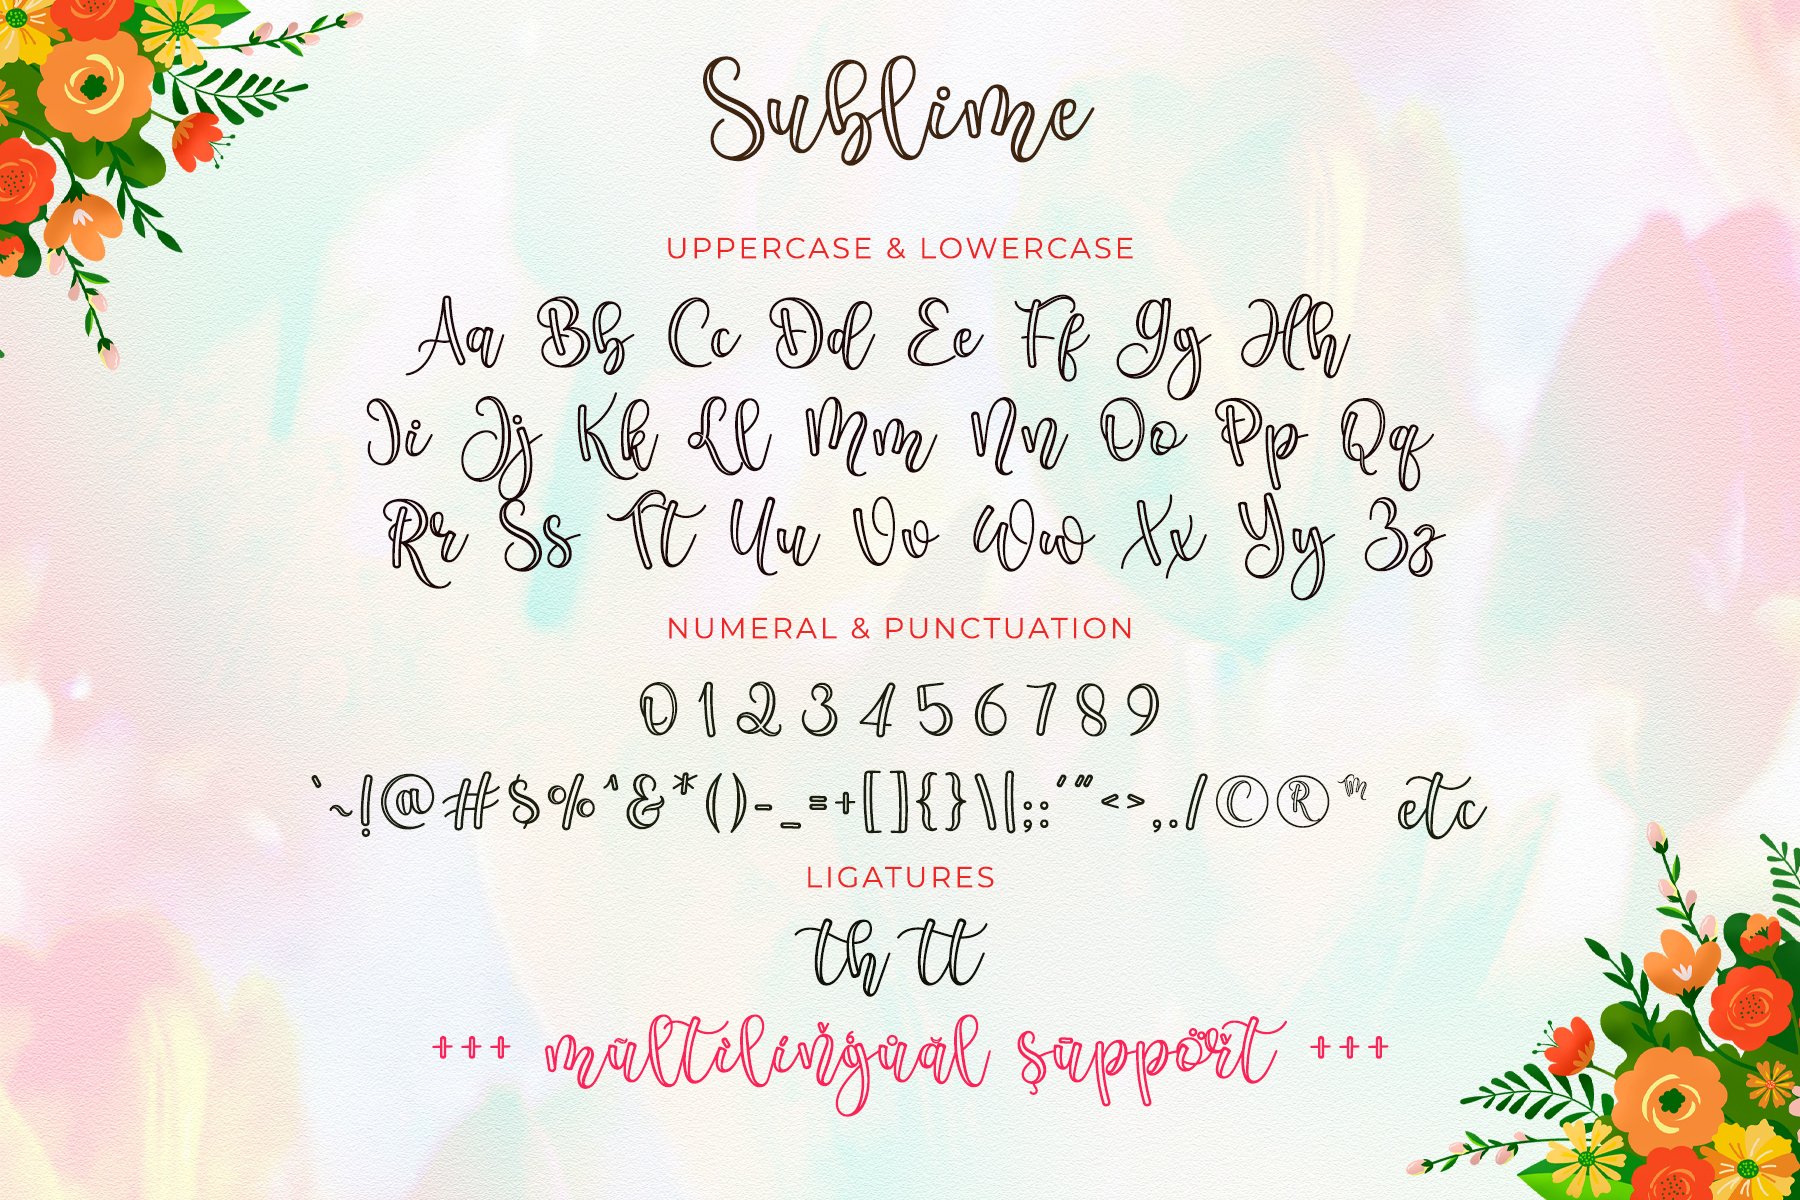 Sublime
UPPERCASE & LOWERCASE
Aa Bb Cc Dd Ee Ff Gg Hh
Ii Jj Kk Ll Mm Nn Oo Pp Qq
Rr Ss Tt Uu Vv Ww Xx Yy Zz
NUMERAL & PUNCTUATION
0 1 2 3 4 5 6 7 8 9
`~!@#$%^&*()-_=+[]{}\|;:'"<>,./©®™ etc
LIGATURES
th tt
+++ mūltìlíňģůăl şūppörť +++